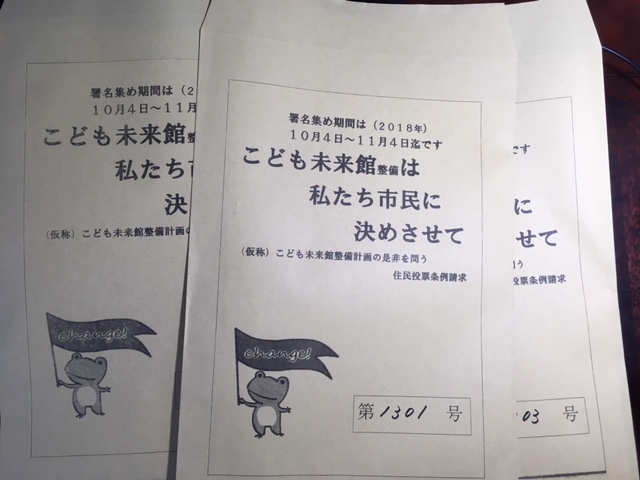 署名集め期間は（2
１０月４日～１１月
こども未来館整
私たち市
決
（仮称）こども未来館整備計画の
change!
署名集め期間は（2018年）
１０月４日～１１月４日迄です
こども未来館整備は
私たち市民に
決めさせて
（仮称）こども未来館整備計画の是非を問う
住民投票条例請求
change!
第 1301 号
です
に
せて
問う
投票条例請求
03 号